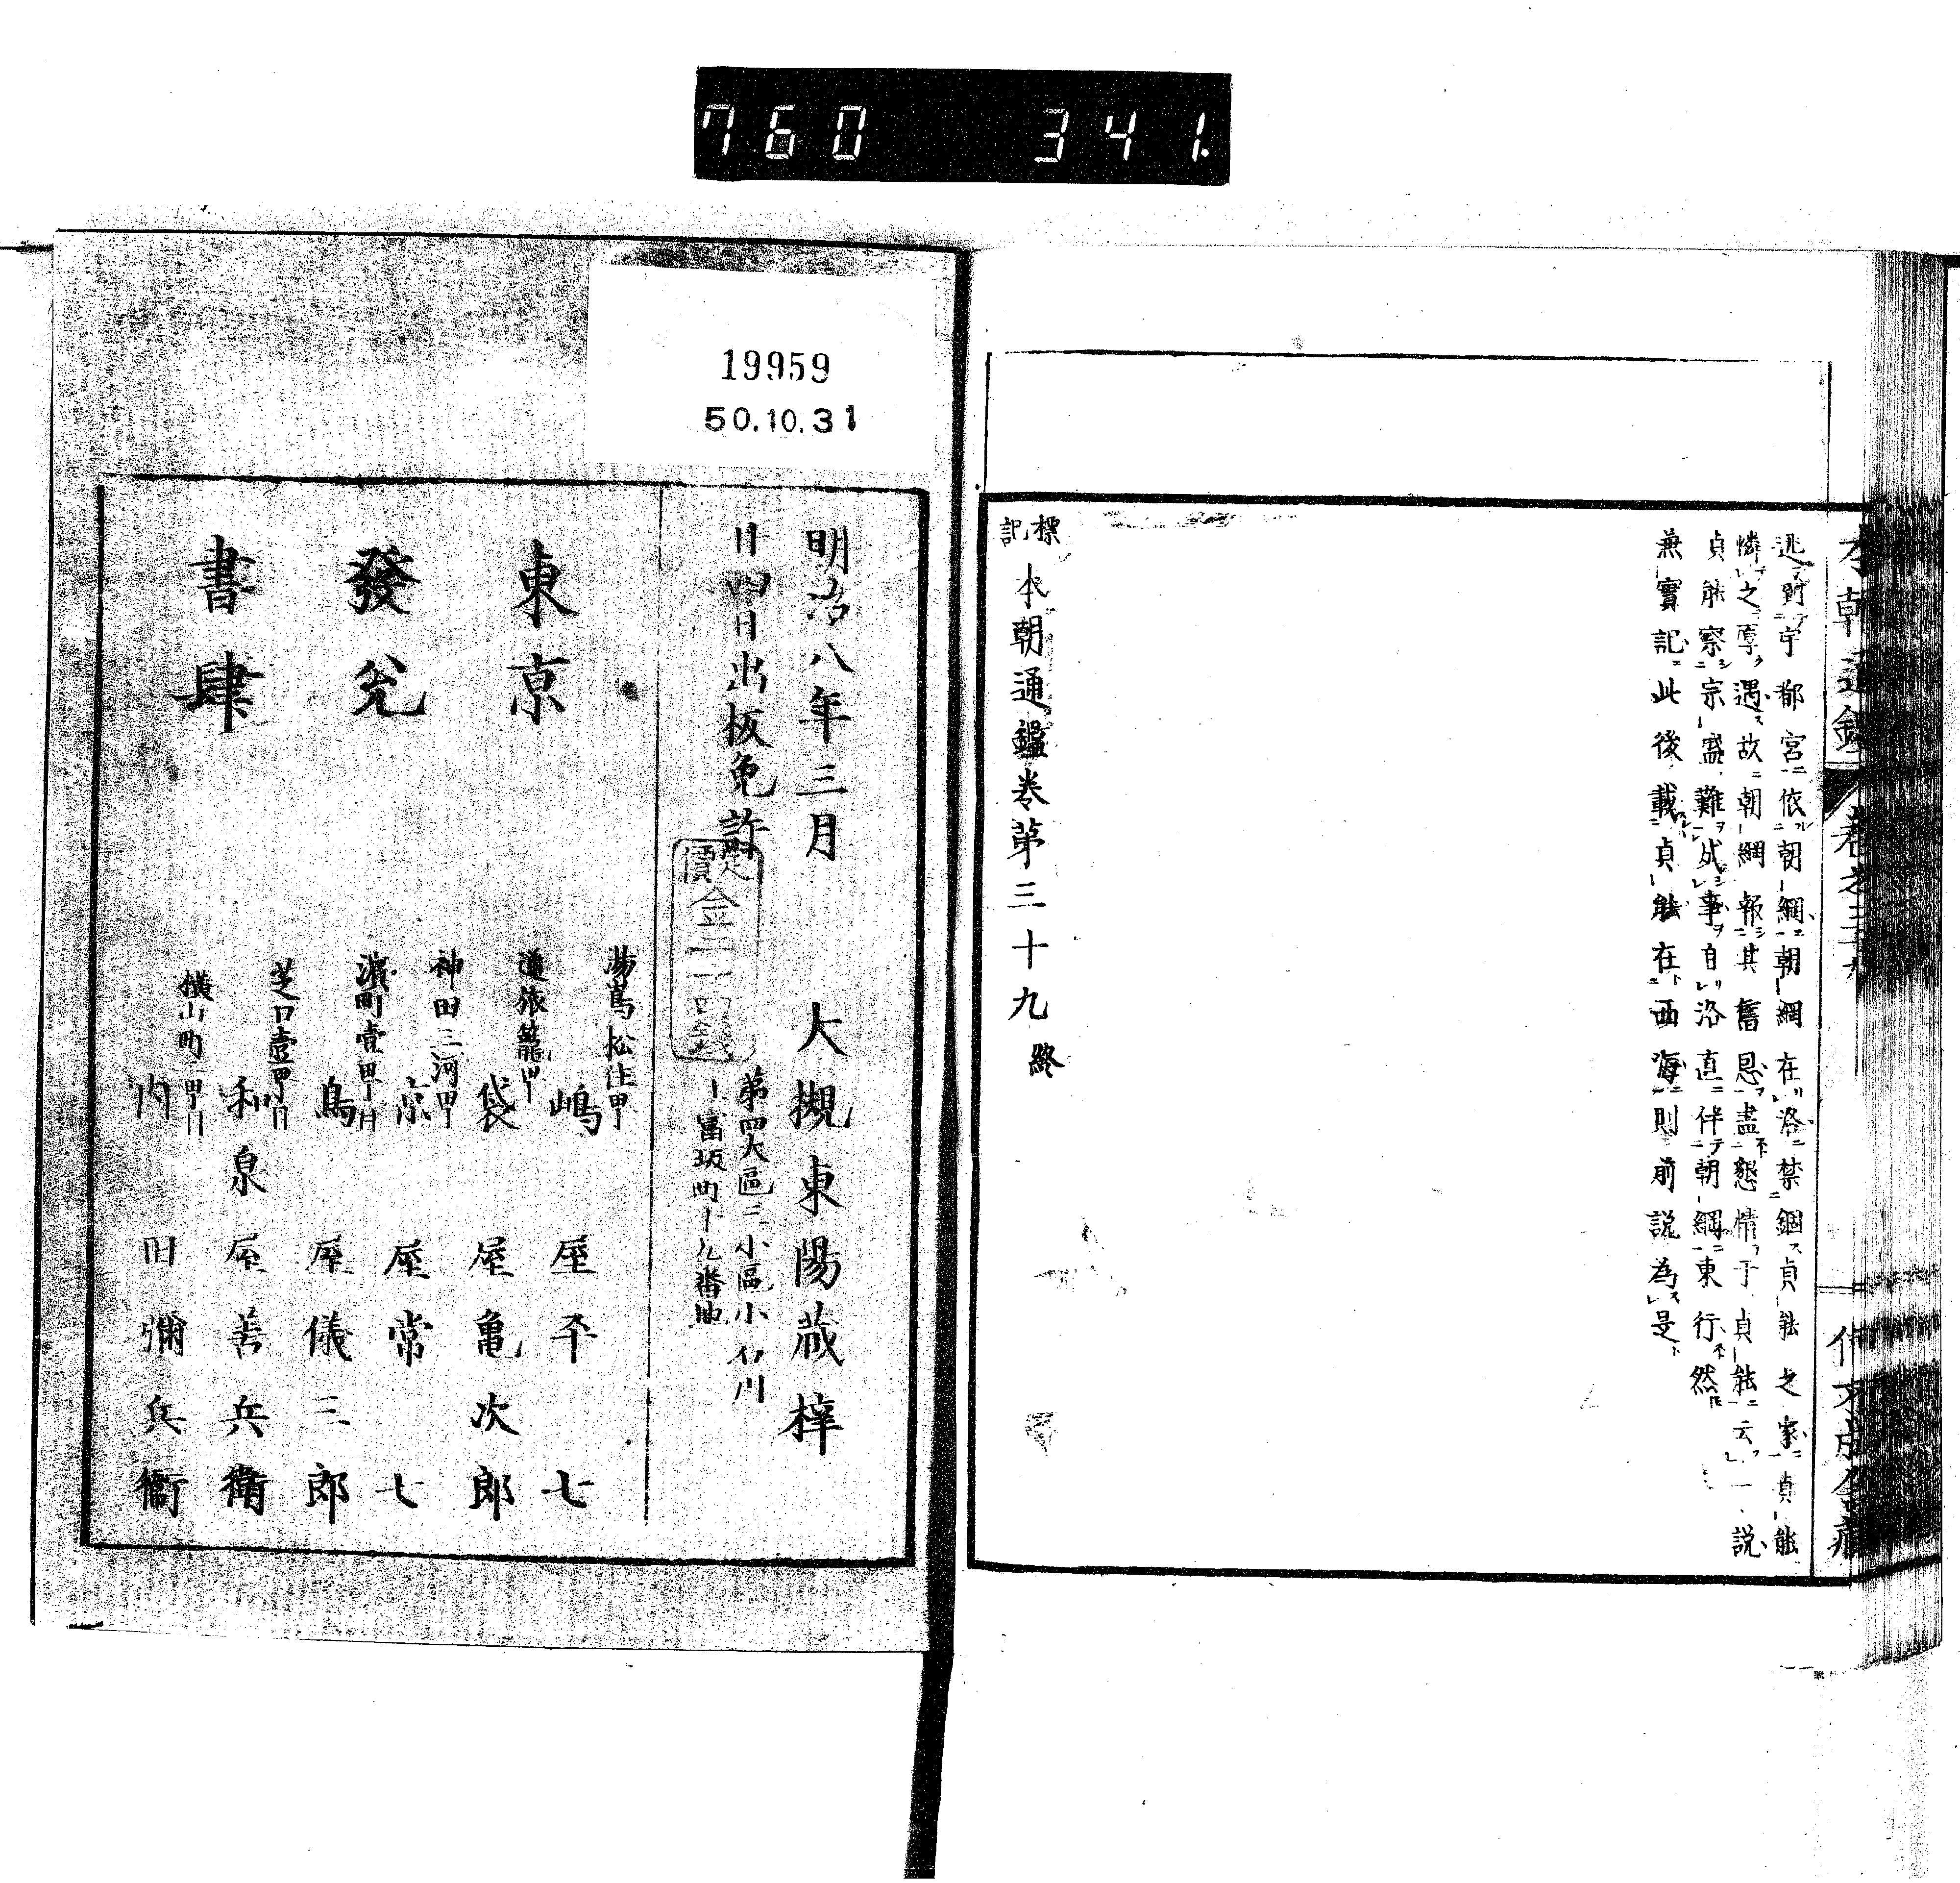 760 341.
逃到宇都宮依朝綱朝綱在洛禁錮貞能之家貞能
憐之厚遇故朝綱報其舊恩盡懇情于貞能云一説
貞能察宗盛難成事自洛直伴朝綱東行然
兼實記此後載貞能在西海則前説為是
標記 本朝通鑑卷第三十九終
19959
50.10.31
明治八年三月
廿四日出板免許
大槻東陽蔵梓
第四大區三小區小石川
富坂町十九番地
定價金
東京
發兌
書肆
湯島松住町
嶋屋平七
通旅籠町
袋屋亀次郎
神田三河町
京屋常七
濵町壹丁目
鳥屋儀三郎
芝口壹丁目
和泉屋善兵衛
横山町
内田彌兵衞